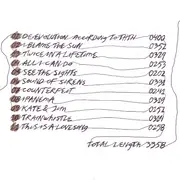 DEEVOLUTION ACCORDING TO TATH 0400
I BLAME THE SUN 0352
TWICE IN A LIFETIME 0329
ALL I CAN DO 0253
SEE THE SIGHTS 0202
SOUND OF SIRENS 0338
COUNTERFEIT 0241
IPANEMA 0329
KATE & JIM 0274
TRAINWHISTLE 0304
THIS IS A LOVESONG 0258
TOTAL LENGTH 3358